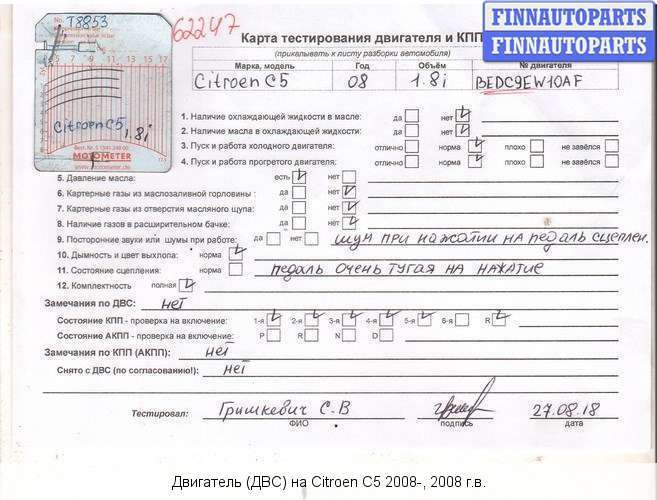 No. T8853
5 7 9 11 13 15 17
Citroen C5 1.8i
Best. Nr. 5 1341 248 00
MOTOMETER
62247
FINNAUTOPARTS
FINNAUTOPARTS
Карта тестирования двигателя и КПП
(прикалывать к листу разборки автомобиля)
Марка, модель Год Объём № двигателя
Citroen C5 08 1.8i BEDC9EW10AF
1. Наличие охлаждающей жидкости в масле: да нет
2. Наличие масла в охлаждающей жидкости: да нет
3. Пуск и работа холодного двигателя: отлично норма плохо не завёлся
4. Пуск и работа прогретого двигателя: отлично норма плохо не завёлся
5. Давление масла: есть нет
6. Картерные газы из маслозаливной горловины : да нет
7. Картерные газы из отверстия масляного щупа: да нет
8. Наличие газов в расширительном бачке: да нет
9. Посторонние звуки или шумы при работе: да нет шум при нажатии на педаль сцеплен.
10. Дымность и цвет выхлопа: норма
11. Состояние сцепления: норма педаль очень тугая на нажатие
12. Комплектность полная
Замечания по ДВС: нет
Состояние КПП - проверка на включение: 1-я 2-я 3-я 4-я 5-я 6-я R
Состояние АКПП - проверка на включение: P R N D
Замечания по КПП (АКПП): нет
Снято с ДВС (по согласованию!): нет
Тестировал: Гришкевич С.В 27.08.18
ФИО подпись дата
Двигатель (ДВС) на Citroen C5 2008-, 2008 г.в.